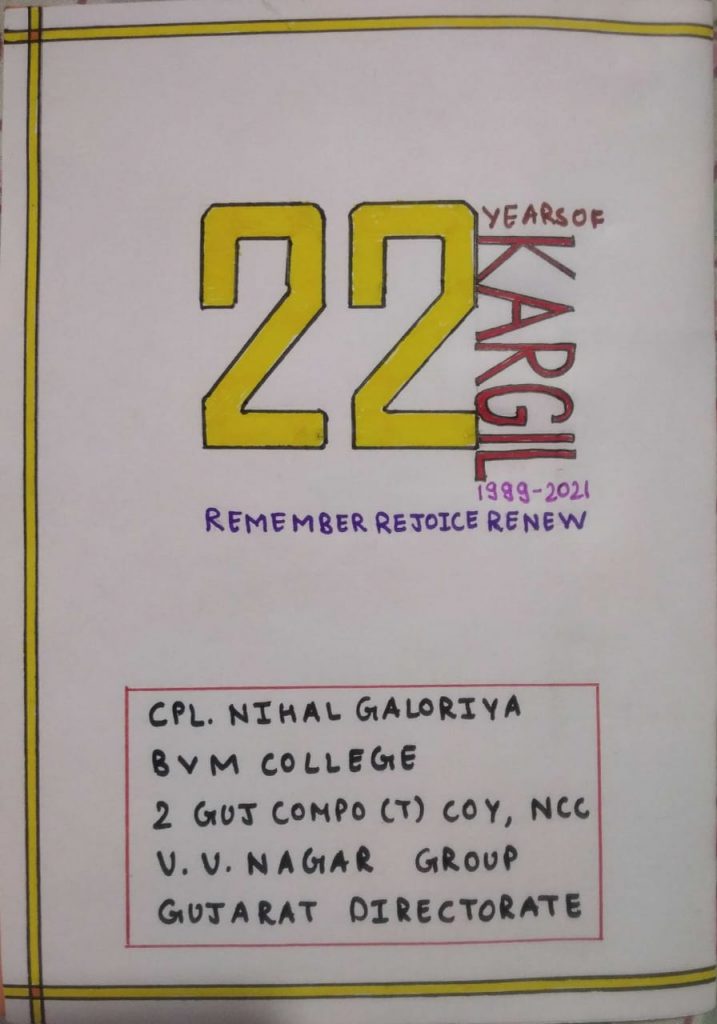 22
YEARS OF
KARGIL
1999-2021
REMEMBER REJOICE RENEW
CPL. NIHAL GALORIYA
BVM COLLEGE
2 GUJ COMPO (T) COY, NCC
V. V. NAGAR GROUP
GUJARAT DIRECTORATE